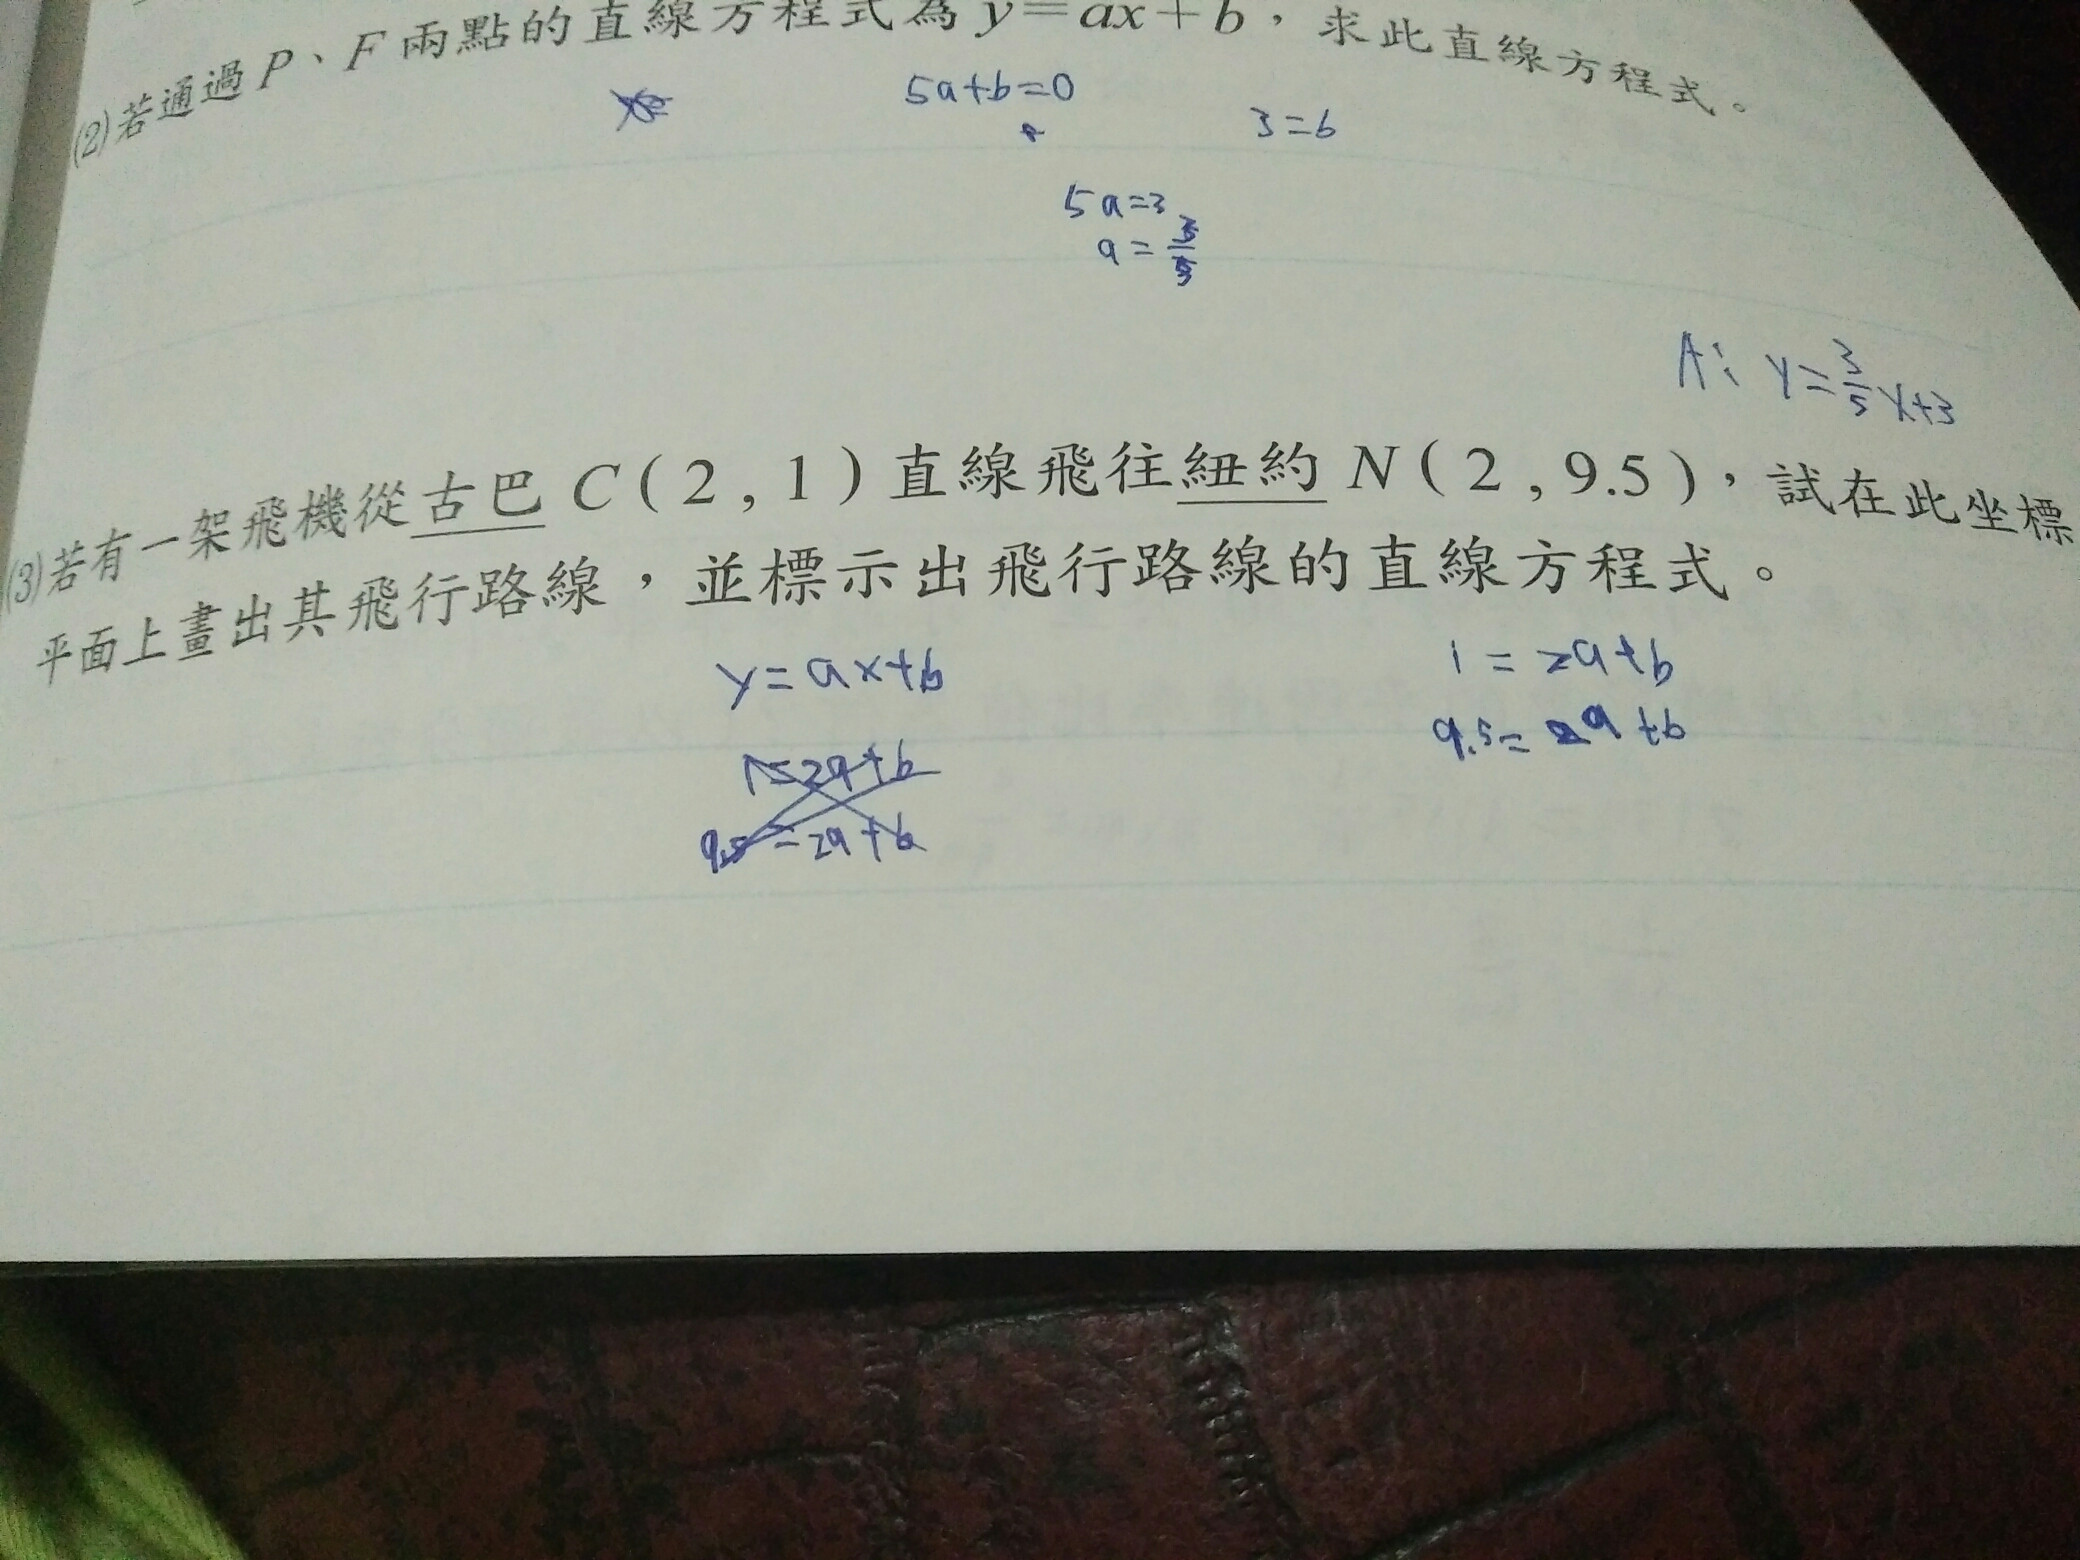 (2)若通過 P、F 兩點的直線方程式為 y=ax+b，求此直線方程式。
5a+b=0
3=b
5a=3
a=3/5
A: y=3/5x+3
(3)若有一架飛機從古巴 C(2,1)直線飛往紐約 N(2,9.5)，試在此坐標
平面上畫出其飛行路線，並標示出飛行路線的直線方程式。
y=ax+b
1=2a+b
9.5=2a+b
1=2a+b
9.5=2a+b